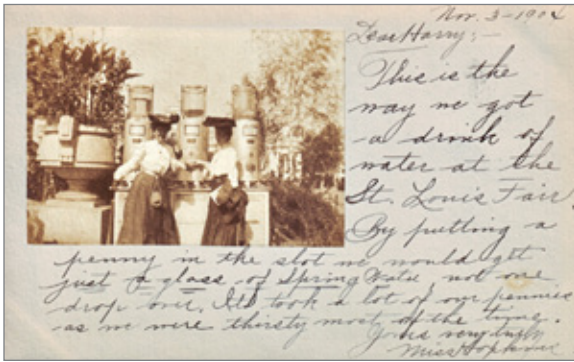 Nov. 3-1904
Dear Harry:-
This is the
way we got
a drink of
water at the
St. Louis Fair.
By putting a
penny in the slot we would get
just a glass of Spring Water not one
drop over. It took a lot of our pennies
as we were thirsty most of the time.
Yours very truly
Miss